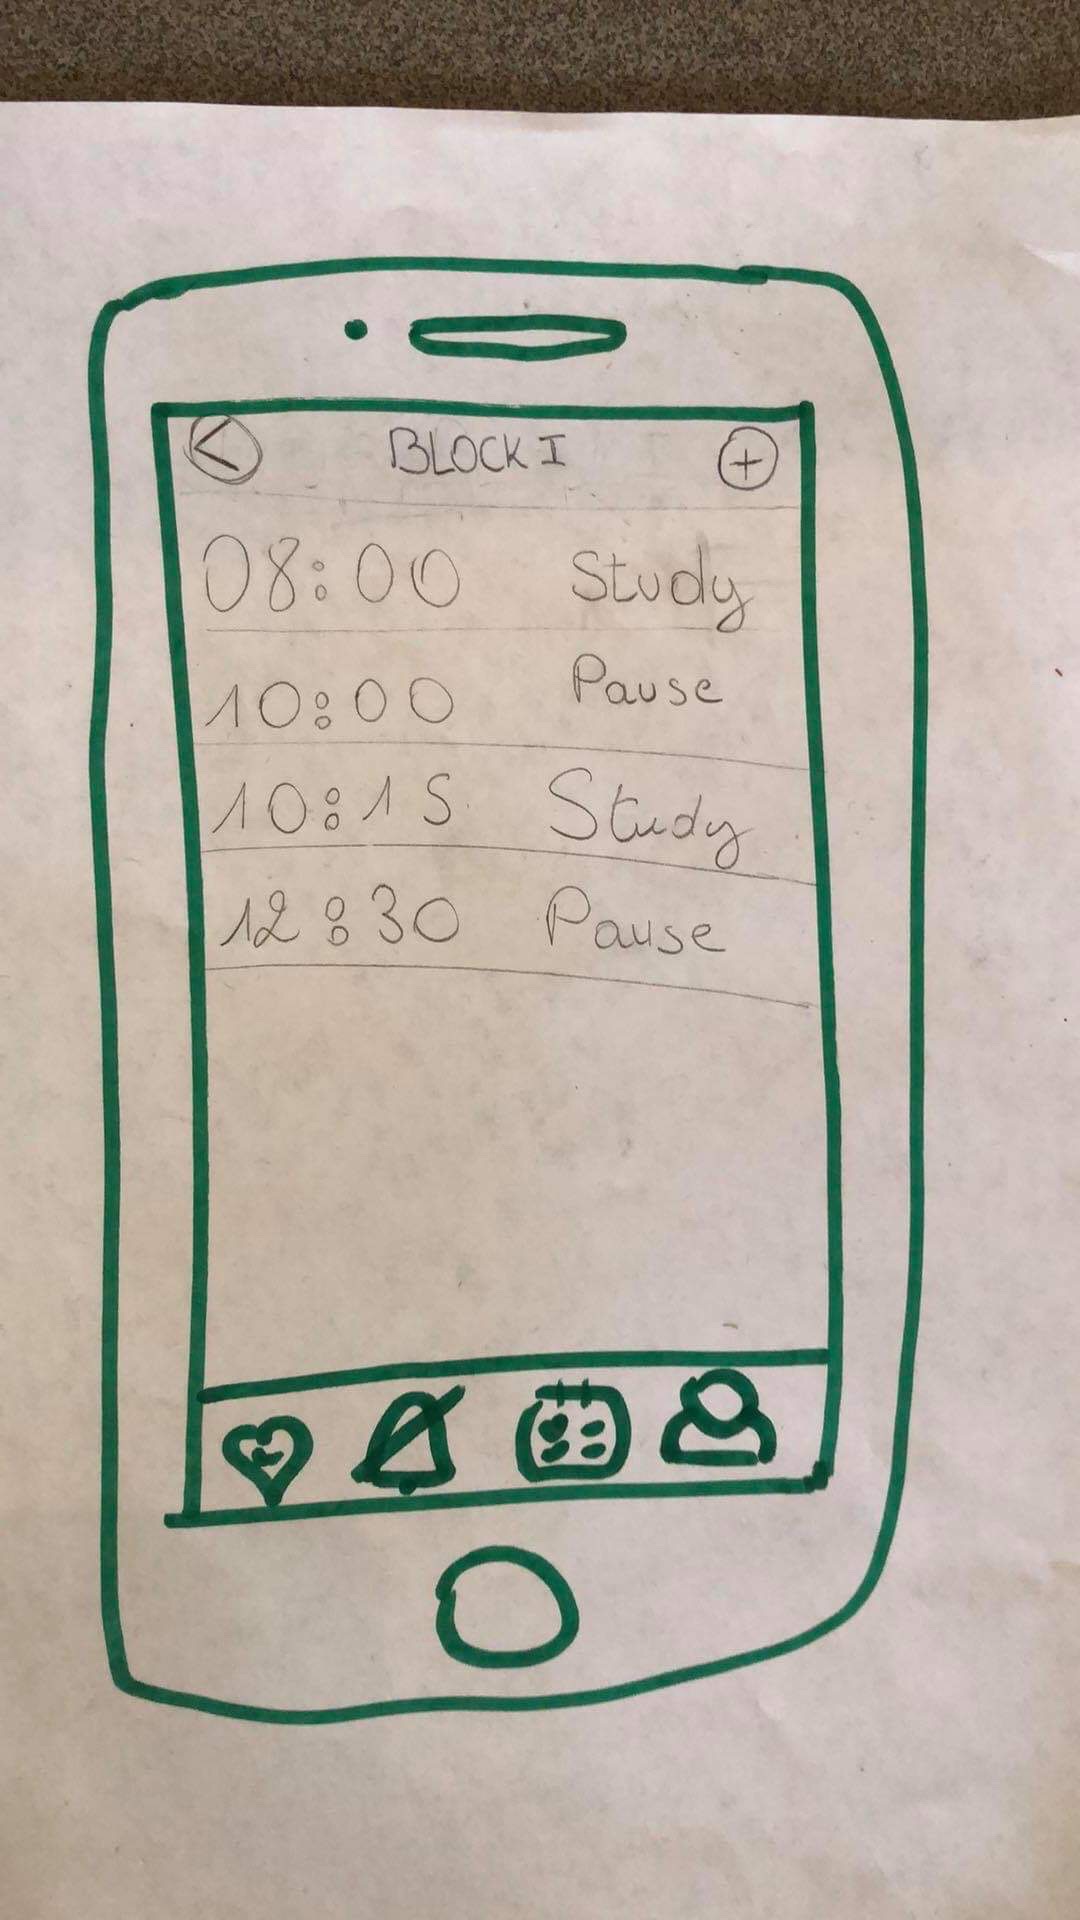 < BLOCK I +
08:00 Study
10:00 Pause
10:15 Study
12:30 Pause